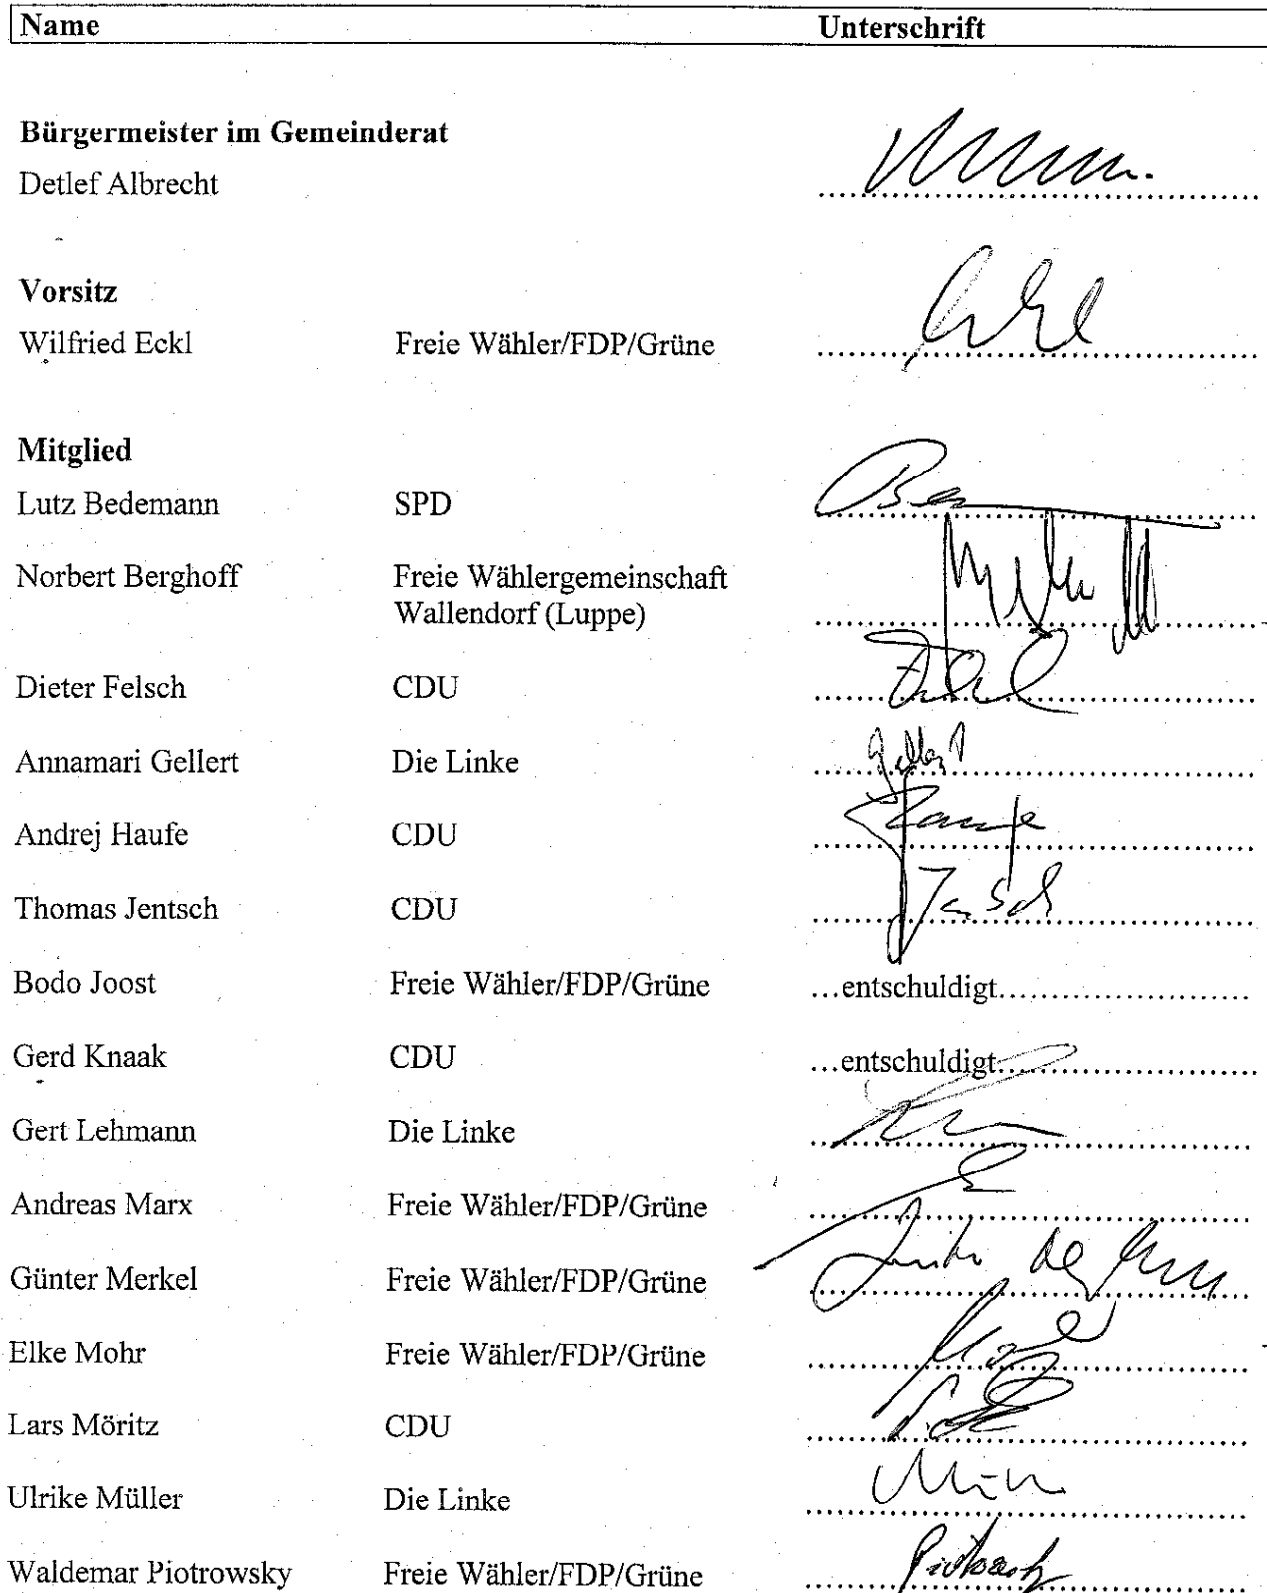 Name Unterschrift
Bürgermeister im Gemeinderat
Detlef Albrecht
Vorsitz
Wilfried Eckl Freie Wähler/FDP/Grüne
Mitglied
Lutz Bedemann SPD
Norbert Berghoff Freie Wählergemeinschaft
Wallendorf (Luppe)
Dieter Felsch CDU
Annamari Gellert Die Linke
Andrej Haufe CDU
Thomas Jentsch CDU
Bodo Joost Freie Wähler/FDP/Grüne ...entschuldigt.........................
Gerd Knaak CDU ...entschuldigt.........................
Gert Lehmann Die Linke
Andreas Marx Freie Wähler/FDP/Grüne
Günter Merkel Freie Wähler/FDP/Grüne
Elke Mohr Freie Wähler/FDP/Grüne
Lars Möritz CDU
Ulrike Müller Die Linke
Waldemar Piotrowsky Freie Wähler/FDP/Grüne